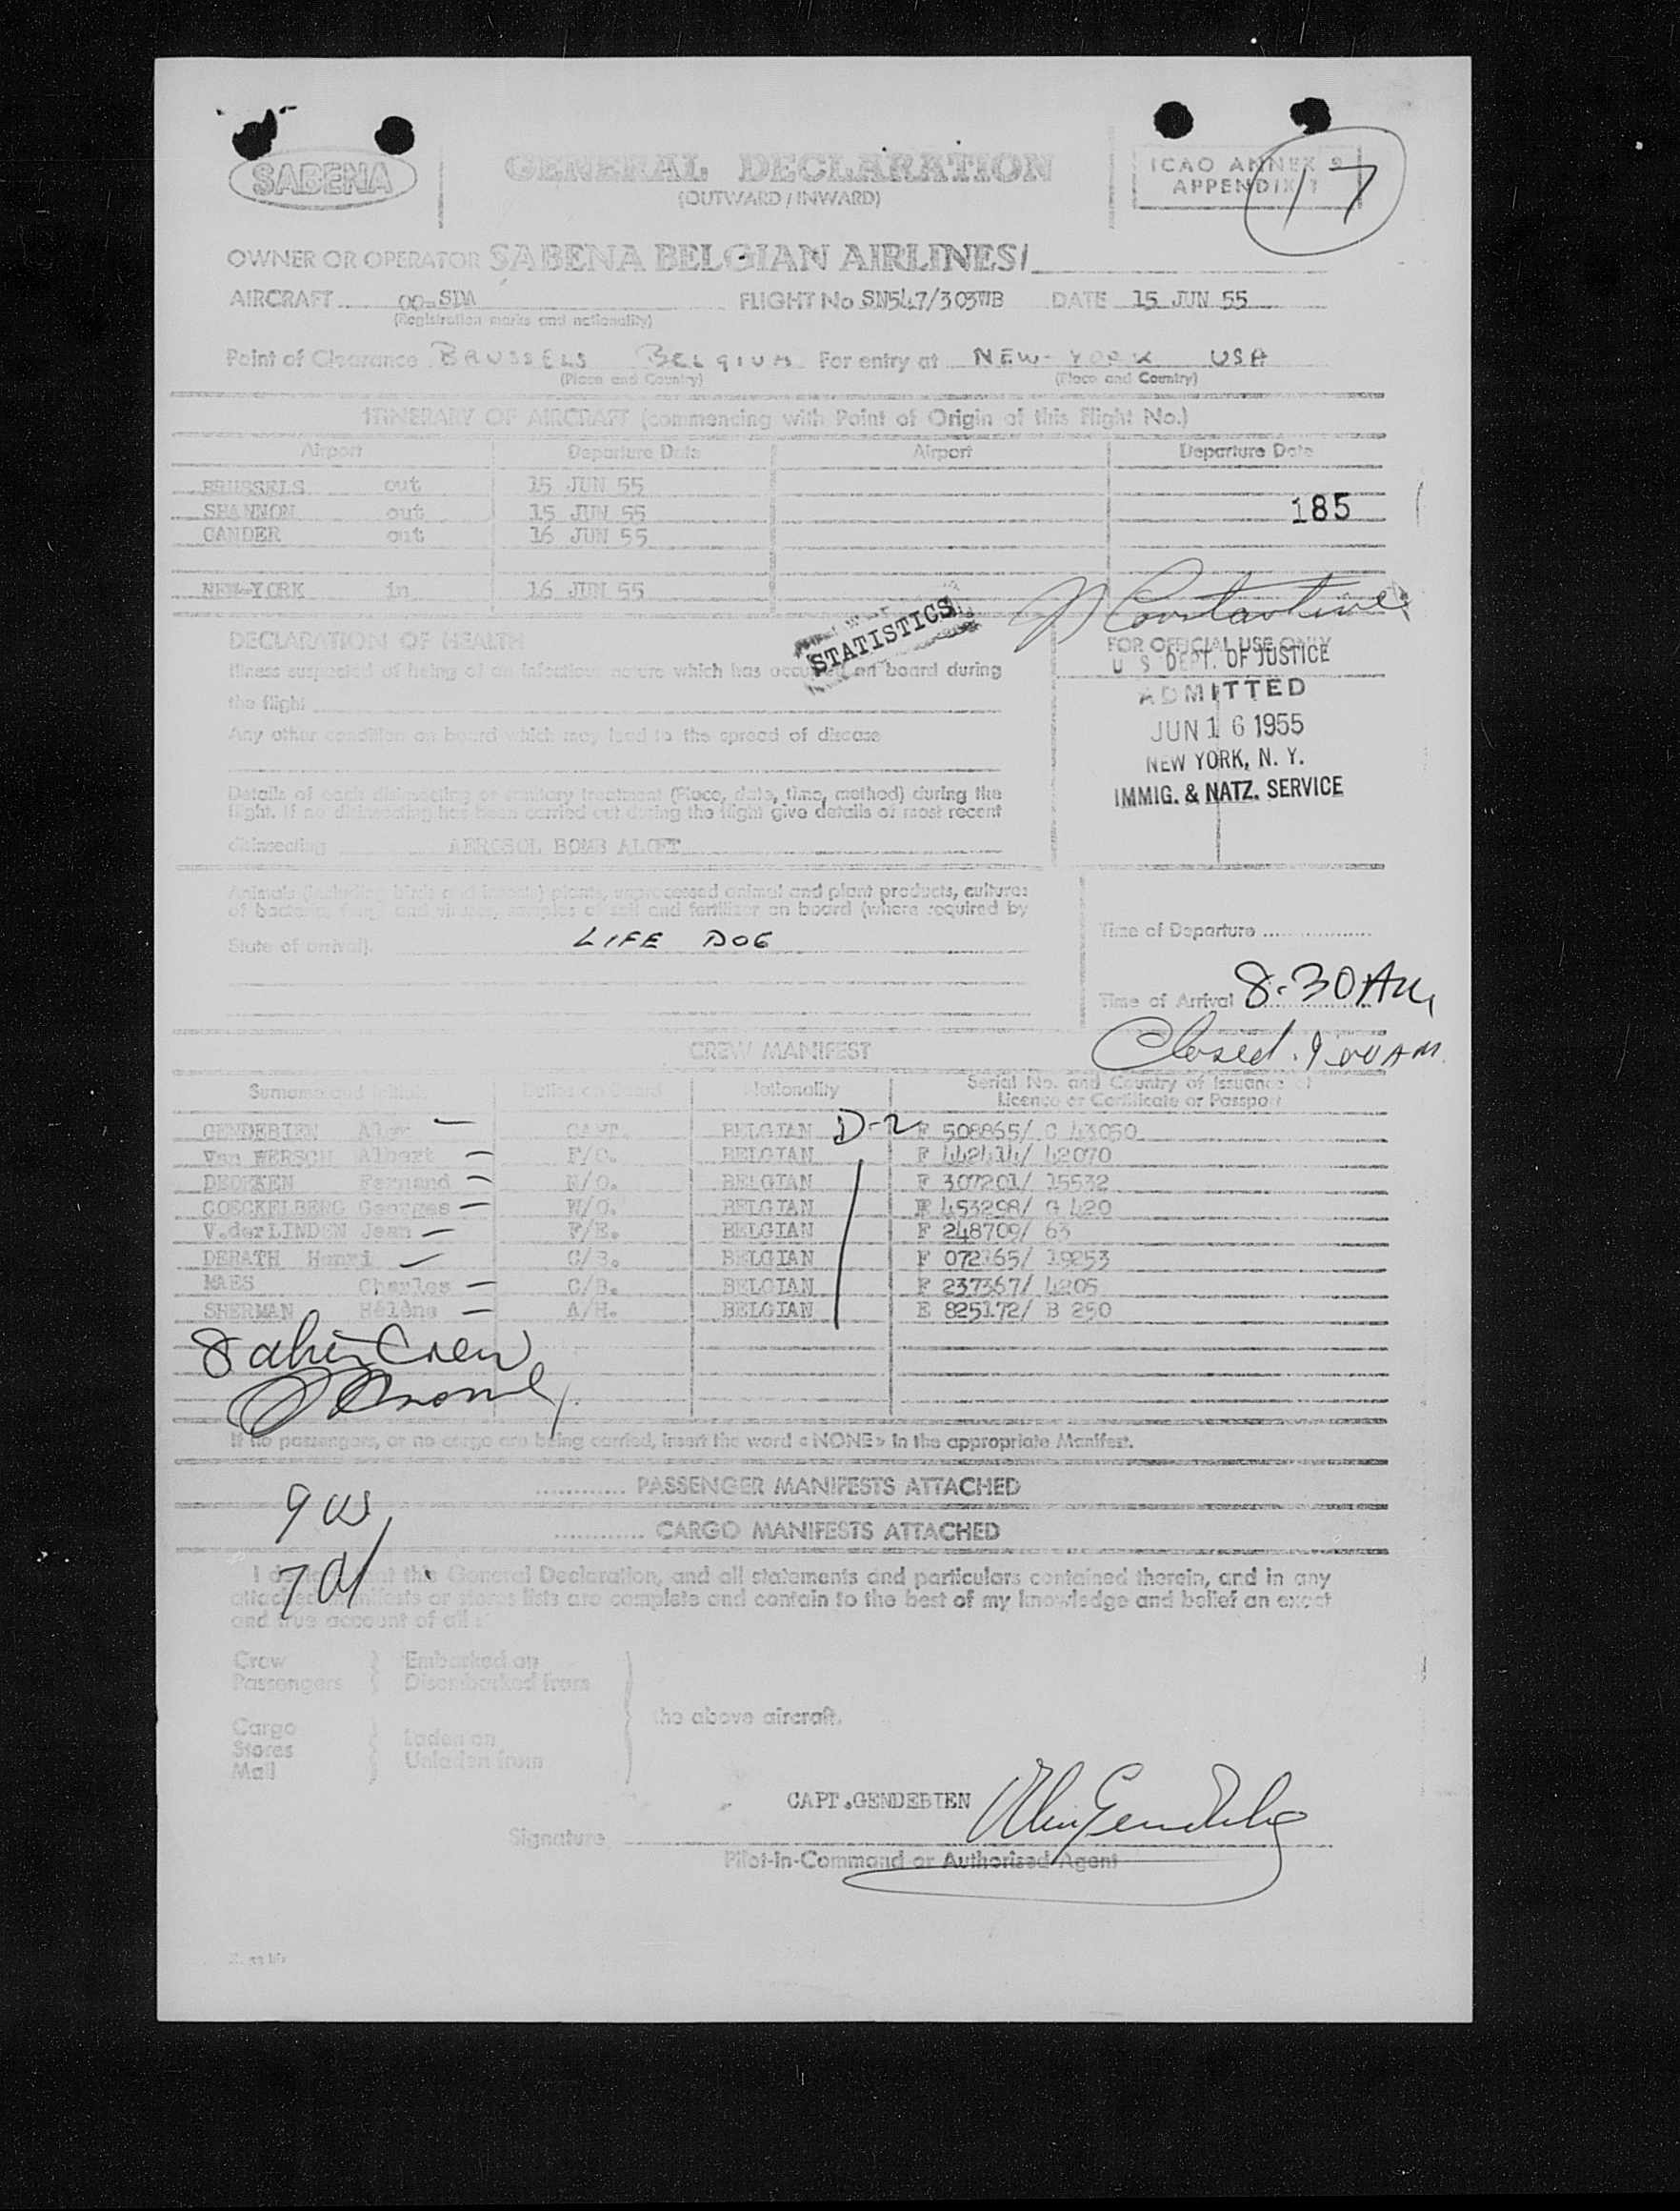 SABENA
GENERAL DECLARATION
(OUTWARD / INWARD)
ICAO ANNEX 9
APPENDIX 1
17
OWNER OR OPERATOR SABENA BELGIAN AIRLINES/
AIRCRAFT OO-SDA FLIGHT No SN547/303WB DATE 15 JUN 55
(Registration marks and nationality)
Point of Clearance BRUSSELS BELGIUM For entry at NEW-YORK USA
(Place and Country) (Place and Country)
ITINERARY OF AIRCRAFT (commencing with Point of Origin of this Flight No.)
Airport Departure Date Airport Departure Date
BRUSSELS out 15 JUN 55
SHANNON out 15 JUN 55
185
GANDER out 16 JUN 55
NEW-YORK in 16 JUN 55
Constantine
STATISTICS
DECLARATION OF HEALTH
FOR OFFICIAL USE ONLY
U S DEPT. OF JUSTICE
ADMITTED
JUN 16 1955
NEW YORK, N. Y.
IMMIG. & NATZ. SERVICE
Illness suspected of being of an infectious nature which has occurred on board during
the flight
Any other condition on board which may lead to the spread of disease
Details of each disinsecting or sanitary treatment (Place, date, time, method) during the
flight. If no disinsecting has been carried out during the flight give details of most recent
disinsecting AEROSOL BOMB ALOFT
Animals (including birds and insects) plants, unprocessed animal and plant products, cultures
of bacteria, fungi and viruses, samples of soil and fertilizer on board (where required by
State of arrival). LIFE DOG
Time of Departure
Time of Arrival 8.30 AM
Closed. 9.00 AM
CREW MANIFEST
Surname and initials Duties on Board Nationality Serial No. and Country of Issuance of
Licence or Certificate or Passport
GENDEBIEN CAPT. BELGIAN D-2 F 508865/ C 43050
Van HERSCH Albert F/O. BELGIAN F 442414/ 42070
Fernand N/O. BELGIAN F 307201/ 15532
GOECKELBERG Georges W/O. BELGIAN 453298/ G 420
V.derLINDEN Jean F/E. BELGIAN F 248709/ 63
DERATH Henri BELGIAN F 072165/ 19253
MAES Charles BELGIAN F 237367/ 4205
SHERMAN Hélène A/H. BELGIAN E 825172/ B 250
8 alien Crew
If no passengers, or no cargo are being carried, insert the word «NONE» in the appropriate Manifest.
PASSENGER MANIFESTS ATTACHED
9 US
CARGO MANIFESTS ATTACHED
I declare that this General Declaration, and all statements and particulars contained therein, and in any
attached Manifests or stores lists are complete and contain to the best of my knowledge and belief an exact
and true account of all :
Crew Embarked on
Passengers Disembarked from
the above aircraft.
Cargo Laden on
Stores Unladen from
Mail
CAPT.GENDEBIEN
Signature
Pilot-in-Command or Authorised Agent